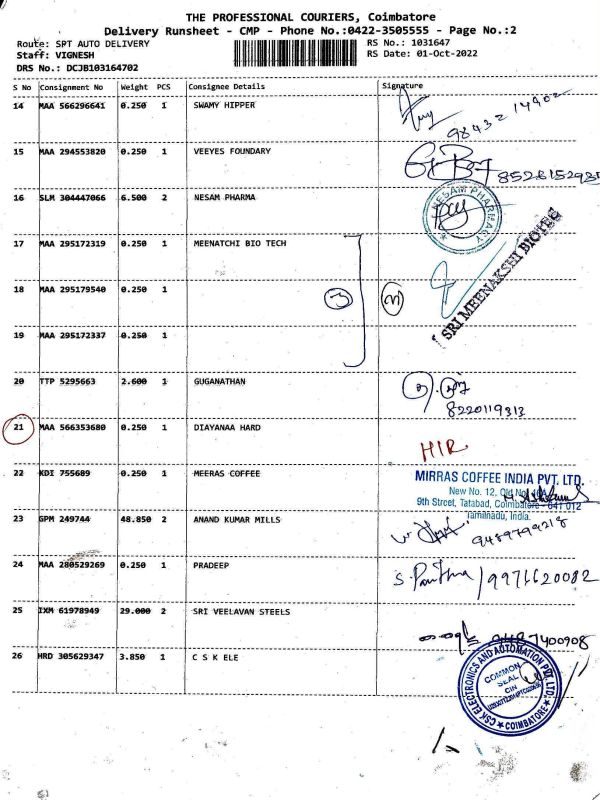 THE PROFESSIONAL COURIERS, Coimbatore
Delivery Runsheet - CMP - Phone No.:0422-3505555 - Page No.:2
Route: SPT AUTO DELIVERY
RS No.: 1031647
Staff: VIGNESH
RS Date: 01-Oct-2022
DRS No.: DCJB103164702
S No Consignment No Weight PCS Consignee Details Signature
14 MAA 566296641 0.250 1 SWAMY HIPPER
15 MAA 294553820 0.250 1 VEEYES FOUNDARY
8526152935
16 SLM 304447066 6.500 2 NESAM PHARMA
NESAM PHARMACY
17 MAA 295172319 0.250 1 MEENATCHI BIO TECH
SRI MEENAKSHI BIOTEC
18 MAA 295179540 0.250 1
3
19 MAA 295172337 0.250 1
20 TTP 5295663 2.600 1 GUGANATHAN
8220119313
21 MAA 566353680 0.250 1 DIAYANAA HARD
HIR
22 KDI 755689 0.250 1 MEERAS COFFEE
MIRRAS COFFEE INDIA PVT. LTD.
New No. 12, Old No.
9th Street, Tatabad, Coimbatore - 641 012
Tamilnadu, India.
23 GPM 249744 48.850 2 ANAND KUMAR MILLS
9489799218
24 MAA 280529269 0.250 1 PRADEEP
9971620082
25 IXM 61978949 29.000 2 SRI VEELAVAN STEELS
9487400908
26 HRD 305629347 3.850 1 C S K ELE
CSK ELECTRONICS AND AUTOMATION PVT. LTD.
COMMON
SEAL
CIN
COIMBATORE